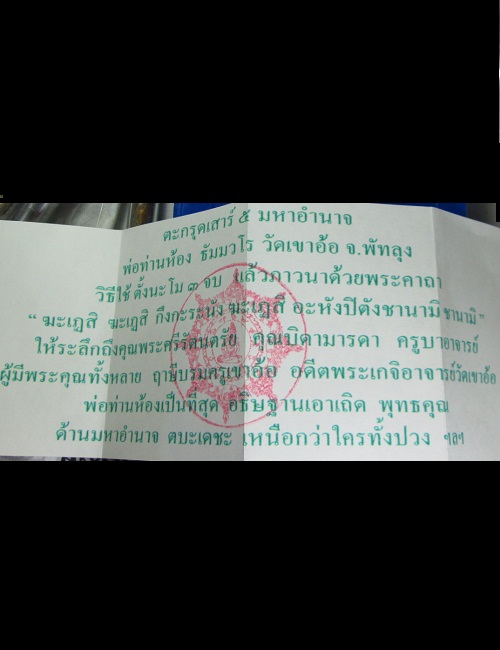 ตะกรุดเสาร์ ๕ มหาอำนาจ
พ่อท่านห้อง ธัมมวโร วัดเขาอ้อ จ.พัทลุง
วิธีใช้ ตั้งนะโม ๓ จบ แล้วภาวนาด้วยพระคาถา
“ ฆะเฎสิ ฆะเฎสิ กึงกะระนัง ฆะเฎสิ อะหังปิตังชานามิ ชานามิ ”
ให้ระลึกถึงคุณพระศรีรัตนตรัย คุณบิดามารดา ครูบาอาจารย์
ผู้มีพระคุณทั้งหลาย ฤาษีบรมครูเขาอ้อ อดีตพระเกจิอาจารย์วัดเขาอ้อ
พ่อท่านห้องเป็นที่สุด อธิษฐานเอาเถิด พุทธคุณ
ด้านมหาอำนาจ ตบะเดชะ เหนือกว่าใครทั้งปวง ฯลฯ